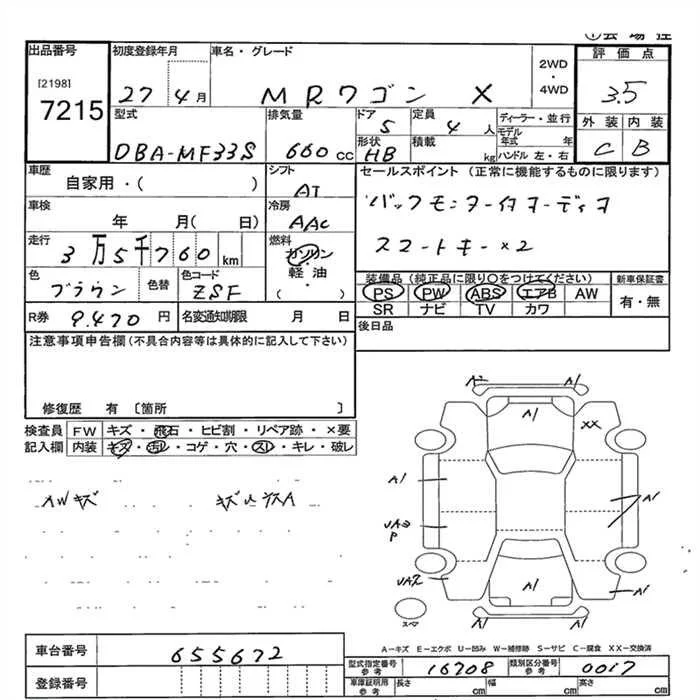 出品番号
[2198]
7215
初度登録年月
27 4月
車名・グレード
MRワゴン X
2WD
・
4WD
評価点
3.5
外装 内装
C B
型式
DBA-MF33S
排気量
660 cc
ドア
5
定員
4 人
形状
HB
積載
kg
ディーラー・並行
モデル年式 年
ハンドル 左・右
車歴
自家用・( )
シフト
AT
セールスポイント (正常に機能するものに限ります)
バックモニター付オーディオ
スマートキー×2
車検
年 月( 日)
冷房
AAC
走行
3万5千760 km
燃料
ガソリン
・
軽油
( )
色
ブラウン
色替
色コード
ZSF
装備品 (純正品に限り○をつけてください)
PS PW ABS エアB AW
SR ナビ TV カワ
新車保証書
有・無
R券 9,470 円
名変通知期限 月 日
後日品
注意事項申告欄 (不具合内容等は具体的に記入して下さい)
修復歴 有 〔箇所 〕
検査員
記入欄
FW キズ・飛石・ヒビ割・リペア跡・×要
内装 キズ・汚レ・コゲ・穴・スレ・キレ・破レ
AWキズ
A1
A1
XX
A1
A1
A1
P
A1
A1
スペア
A-キズ E-エクボ U-凹み W-補修跡 S-サビ C-腐食 XX-交換済
車台番号 655672
登録番号
型式指定番号
参考
16708
類別区分番号
参考
0017
車庫証明用
参考
長さ cm 幅 cm 高さ cm